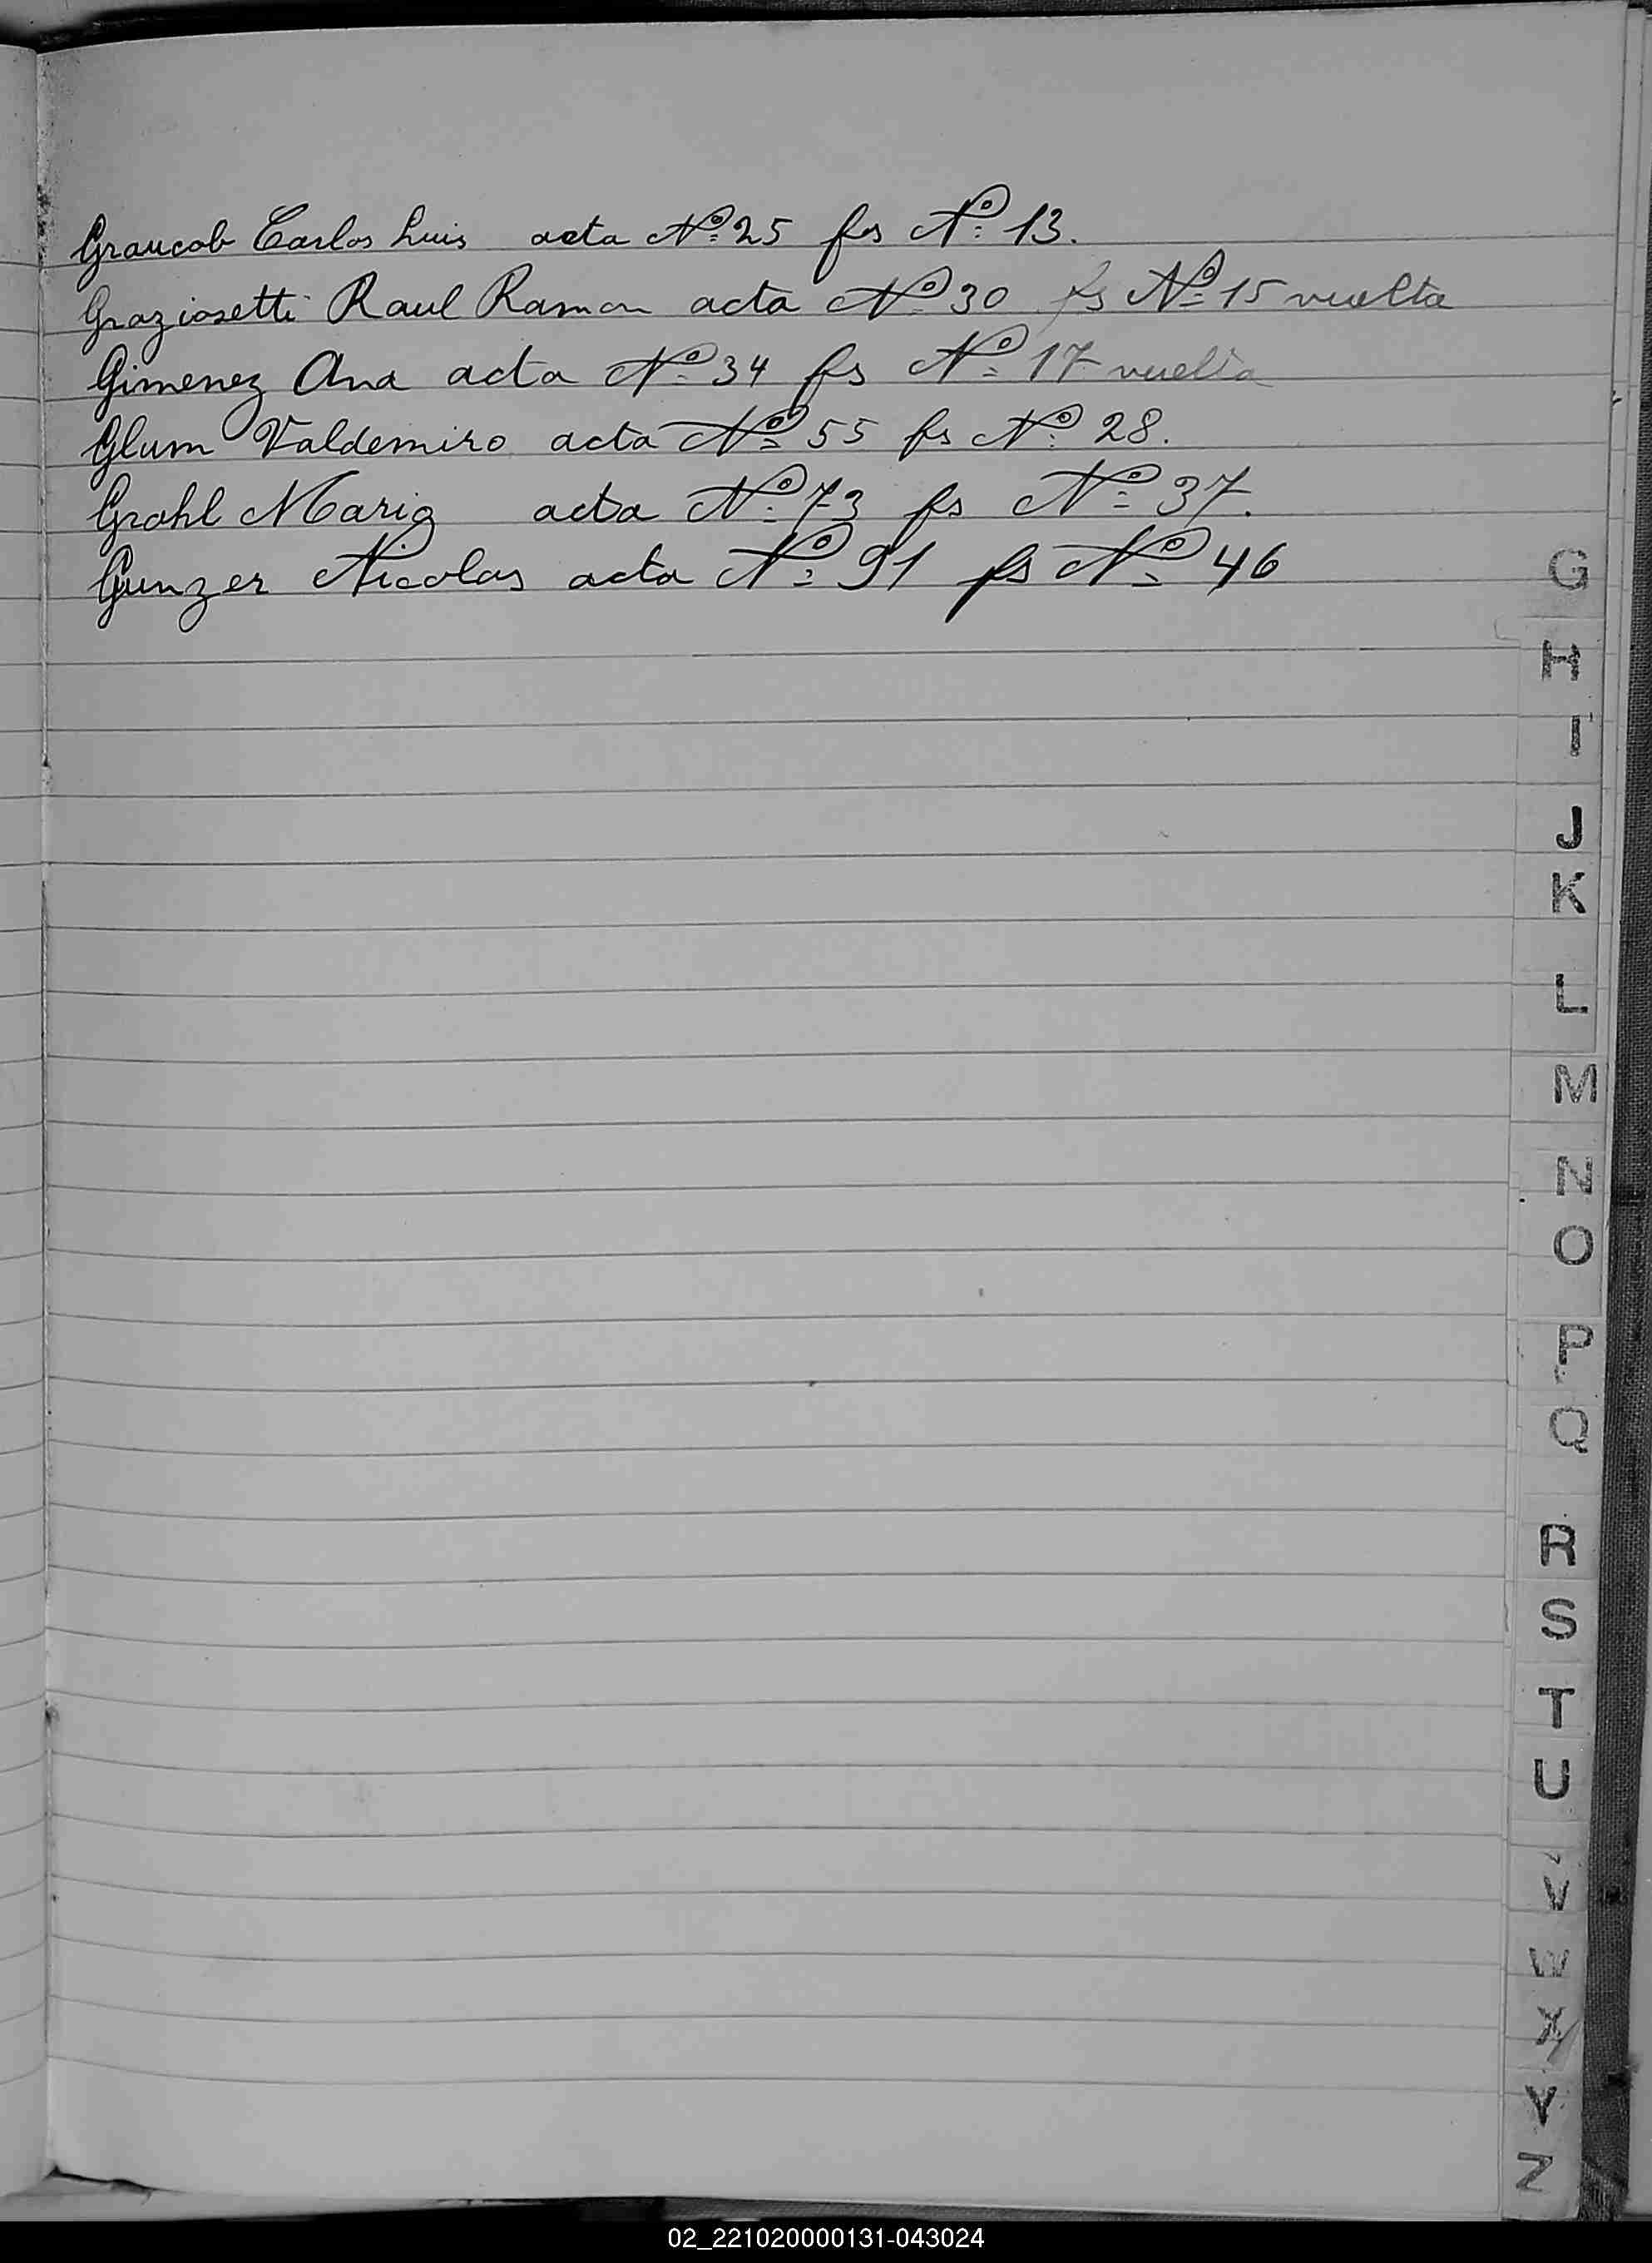 Graucob Carlos Luis acta Nº 25 fs Nº 13.
Graziosetti Raul Ramon acta Nº 30 fs Nº 15 vuelta
Gimenez Ana acta Nº 34 fs Nº 17 vuelta
Glum Valdemiro acta Nº 55 fs Nº 28.
Grahl Maria acta Nº 73 fs Nº 37.
Gunzer Nicolas acta Nº 91 fs Nº 46
G
H
I
J
K
L
M
N
O
P
Q
R
S
T
U
V
W
X
Y
Z
02_221020000131-043024